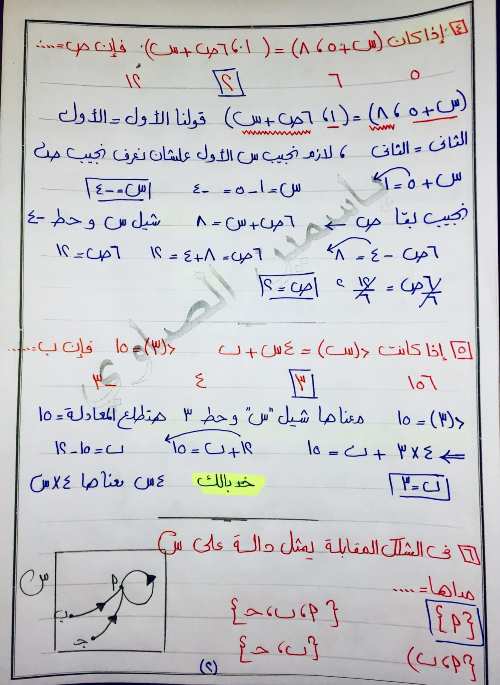 ٤) إذا كان (س+٥ ، ٨) = (١ ، ٦ص+س) فإن ص=....
٥ ٦ ٢ ١٢
(س+٥ ، ٨) = (١ ، ٦ص+س) قولنا الأول = الأول
الثانى = الثانى ، لازم نجيب س الأول علشان نعرف نجيب ص
س+٥=١ س=١-٥=-٤ س=-٤
نجيب بقا ص ← ٦ص+س=٨ شيل س وحط -٤
٦ص-٤=٨ ٦ص=٨+٤=١٢ ٦ص=١٢
٦ص/٦ = ١٢/٦ ، ص=٢
ياسمين الصاوي
٥) إذا كانت د(س)=٤س+ب د(٣)=١٥ فإن ب=......
١٥٦ ٣ ٤ -٣
د(٣)=١٥ معناها شيل "س" وحط ٣ هتطلع المعادلة=١٥
⇐ ٤×٣+ب=١٥ ١٢+ب=١٥ ب=١٥-١٢
ب=٣ خد بالك ٤س معناها ٤×س
٦) فى الشكل المقابلة يمثل دالة على س
مداها=....
{م} {م،ب،ج}
{م،ب) {ب،ج}
س
م
ب
ج
(٢)